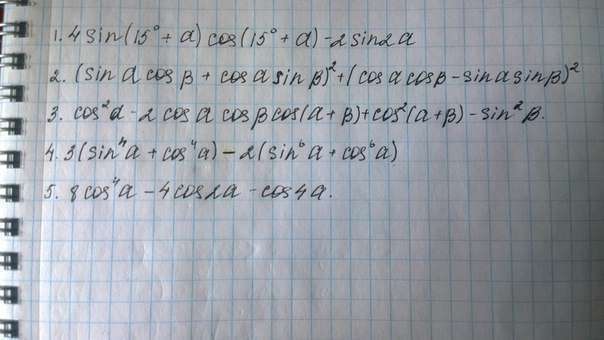 1. 4 sin(15° + α) cos(15° + α) - 2 sin 2α
2. (sin α cos β + cos α sin β)² + (cos α cos β - sin α sin β)²
3. cos²α - 2 cos α cos β cos(α + β) + cos²(α + β) - sin²β.
4. 3(sin⁴α + cos⁴α) - 2(sin⁶α + cos⁶α)
5. 8 cos⁴α - 4 cos 2α - cos 4α.